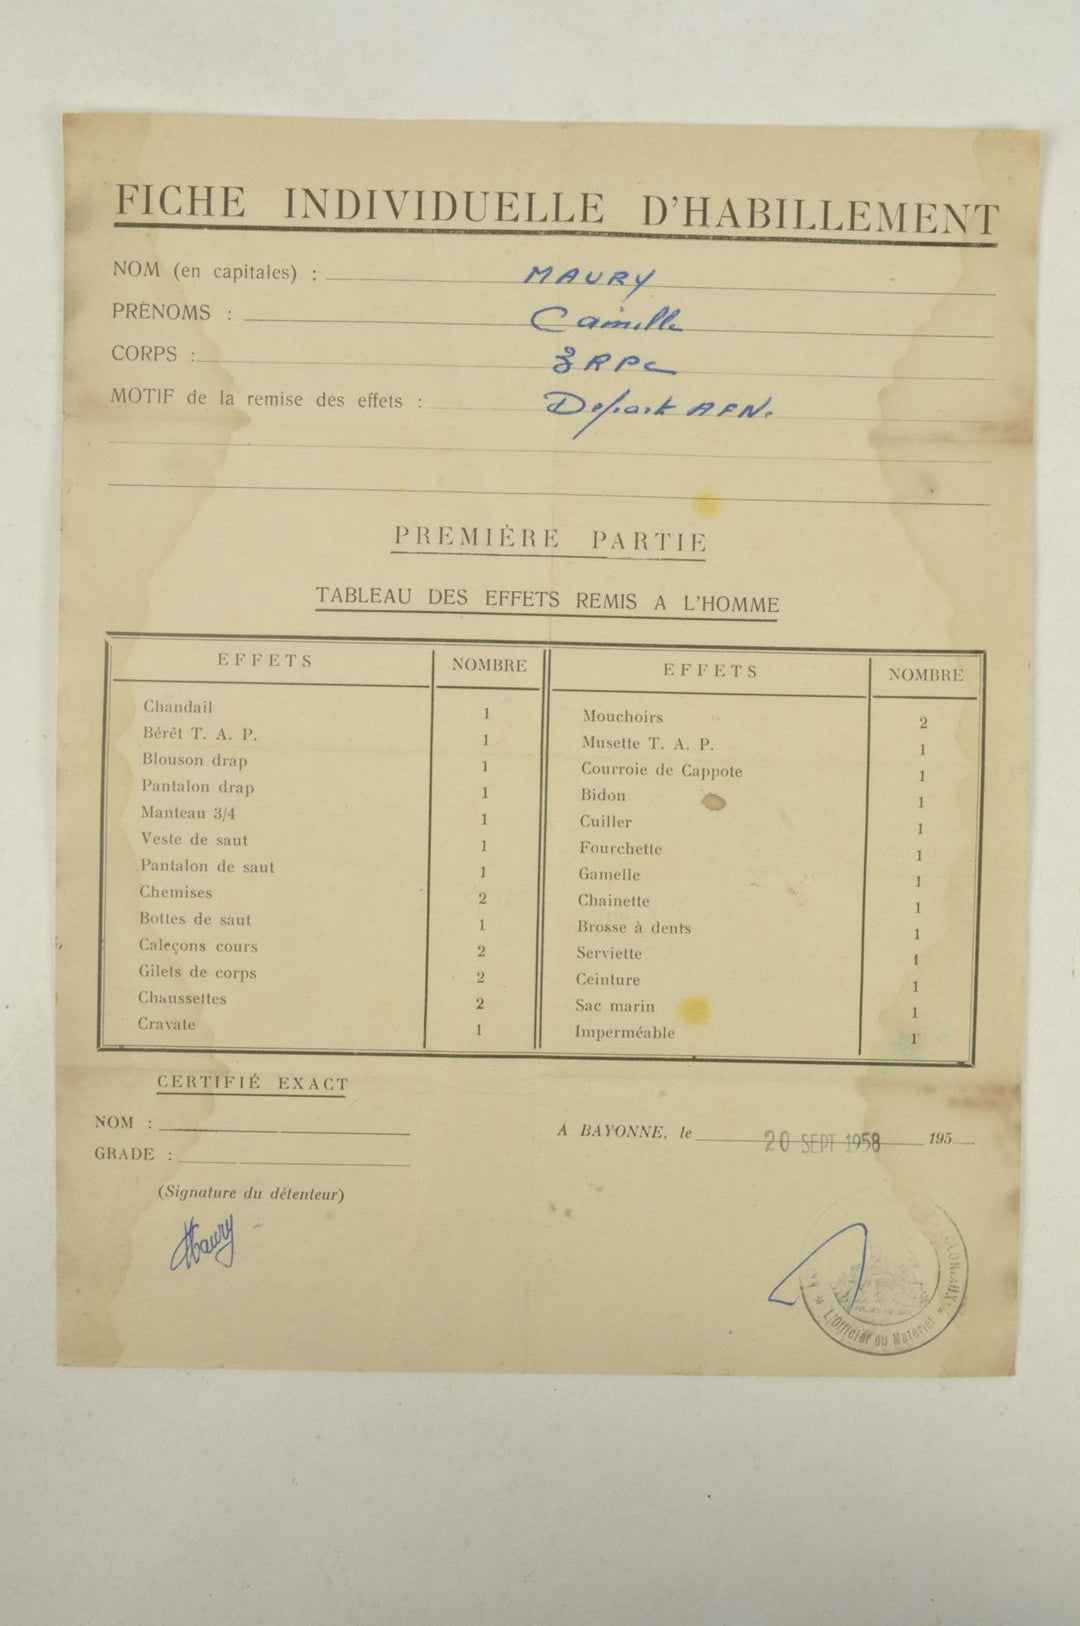 FICHE INDIVIDUELLE D'HABILLEMENT
NOM (en capitales) : MAURY
PRÉNOMS : Camille
CORPS : 3 RPC
MOTIF de la remise des effets : Départ AFN.
PREMIÈRE PARTIE
TABLEAU DES EFFETS REMIS A L'HOMME
EFFETS NOMBRE EFFETS NOMBRE
Chandail 1 Mouchoirs 2
Bérêt T. A. P. 1 Musette T. A. P. 1
Blouson drap 1 Courroie de Cappote 1
Pantalon drap 1 Bidon 1
Manteau 3/4 1 Cuiller 1
Veste de saut 1 Fourchette 1
Pantalon de saut 1 Gamelle 1
Chemises 2 Chainette 1
Bottes de saut 1 Brosse à dents 1
Caleçons cours 2 Serviette 1
Gilets de corps 2 Ceinture 1
Chaussettes 2 Sac marin 1
Cravate 1 Imperméable 1
CERTIFIÉ EXACT
NOM :
A BAYONNE, le 20 SEPT 1958 195
GRADE :
(Signature du détenteur)
Maury
L'Officier du Matériel